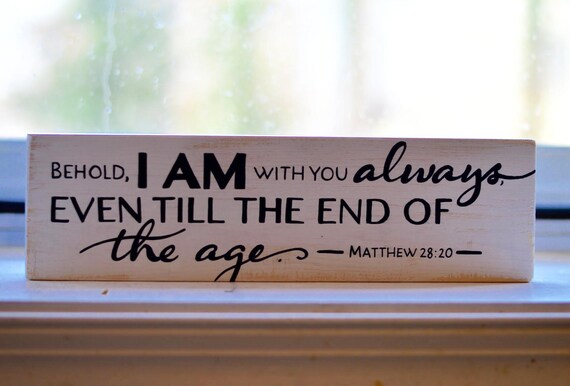 BEHOLD, I AM WITH YOU always,
EVEN TILL THE END OF
the age. — MATTHEW 28:20 —